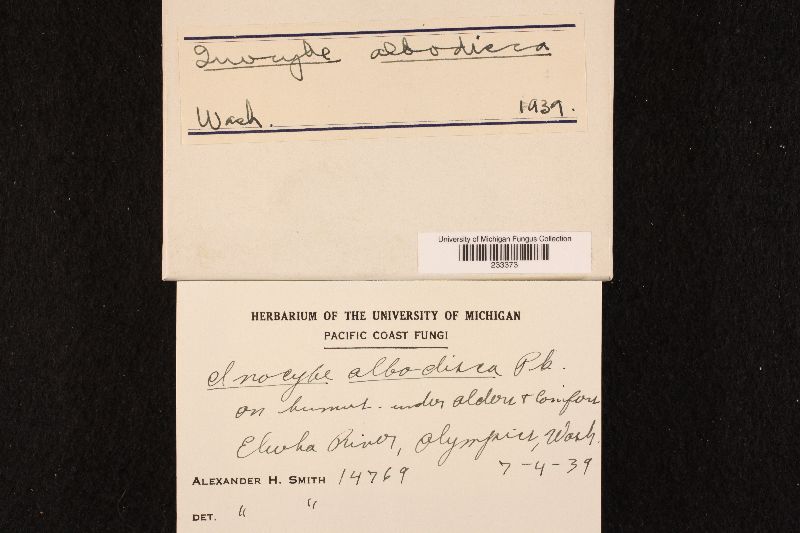 Inocybe albodisca
Wash. 1939.
University of Michigan Fungus Collection
233373
HERBARIUM OF THE UNIVERSITY OF MICHIGAN
PACIFIC COAST FUNGI
Inocybe albo-disca Pk.
on humus. under alders + conifers
Elwha River, Olympics, Wash.
7-4-39
ALEXANDER H. SMITH 14769
DET. " "